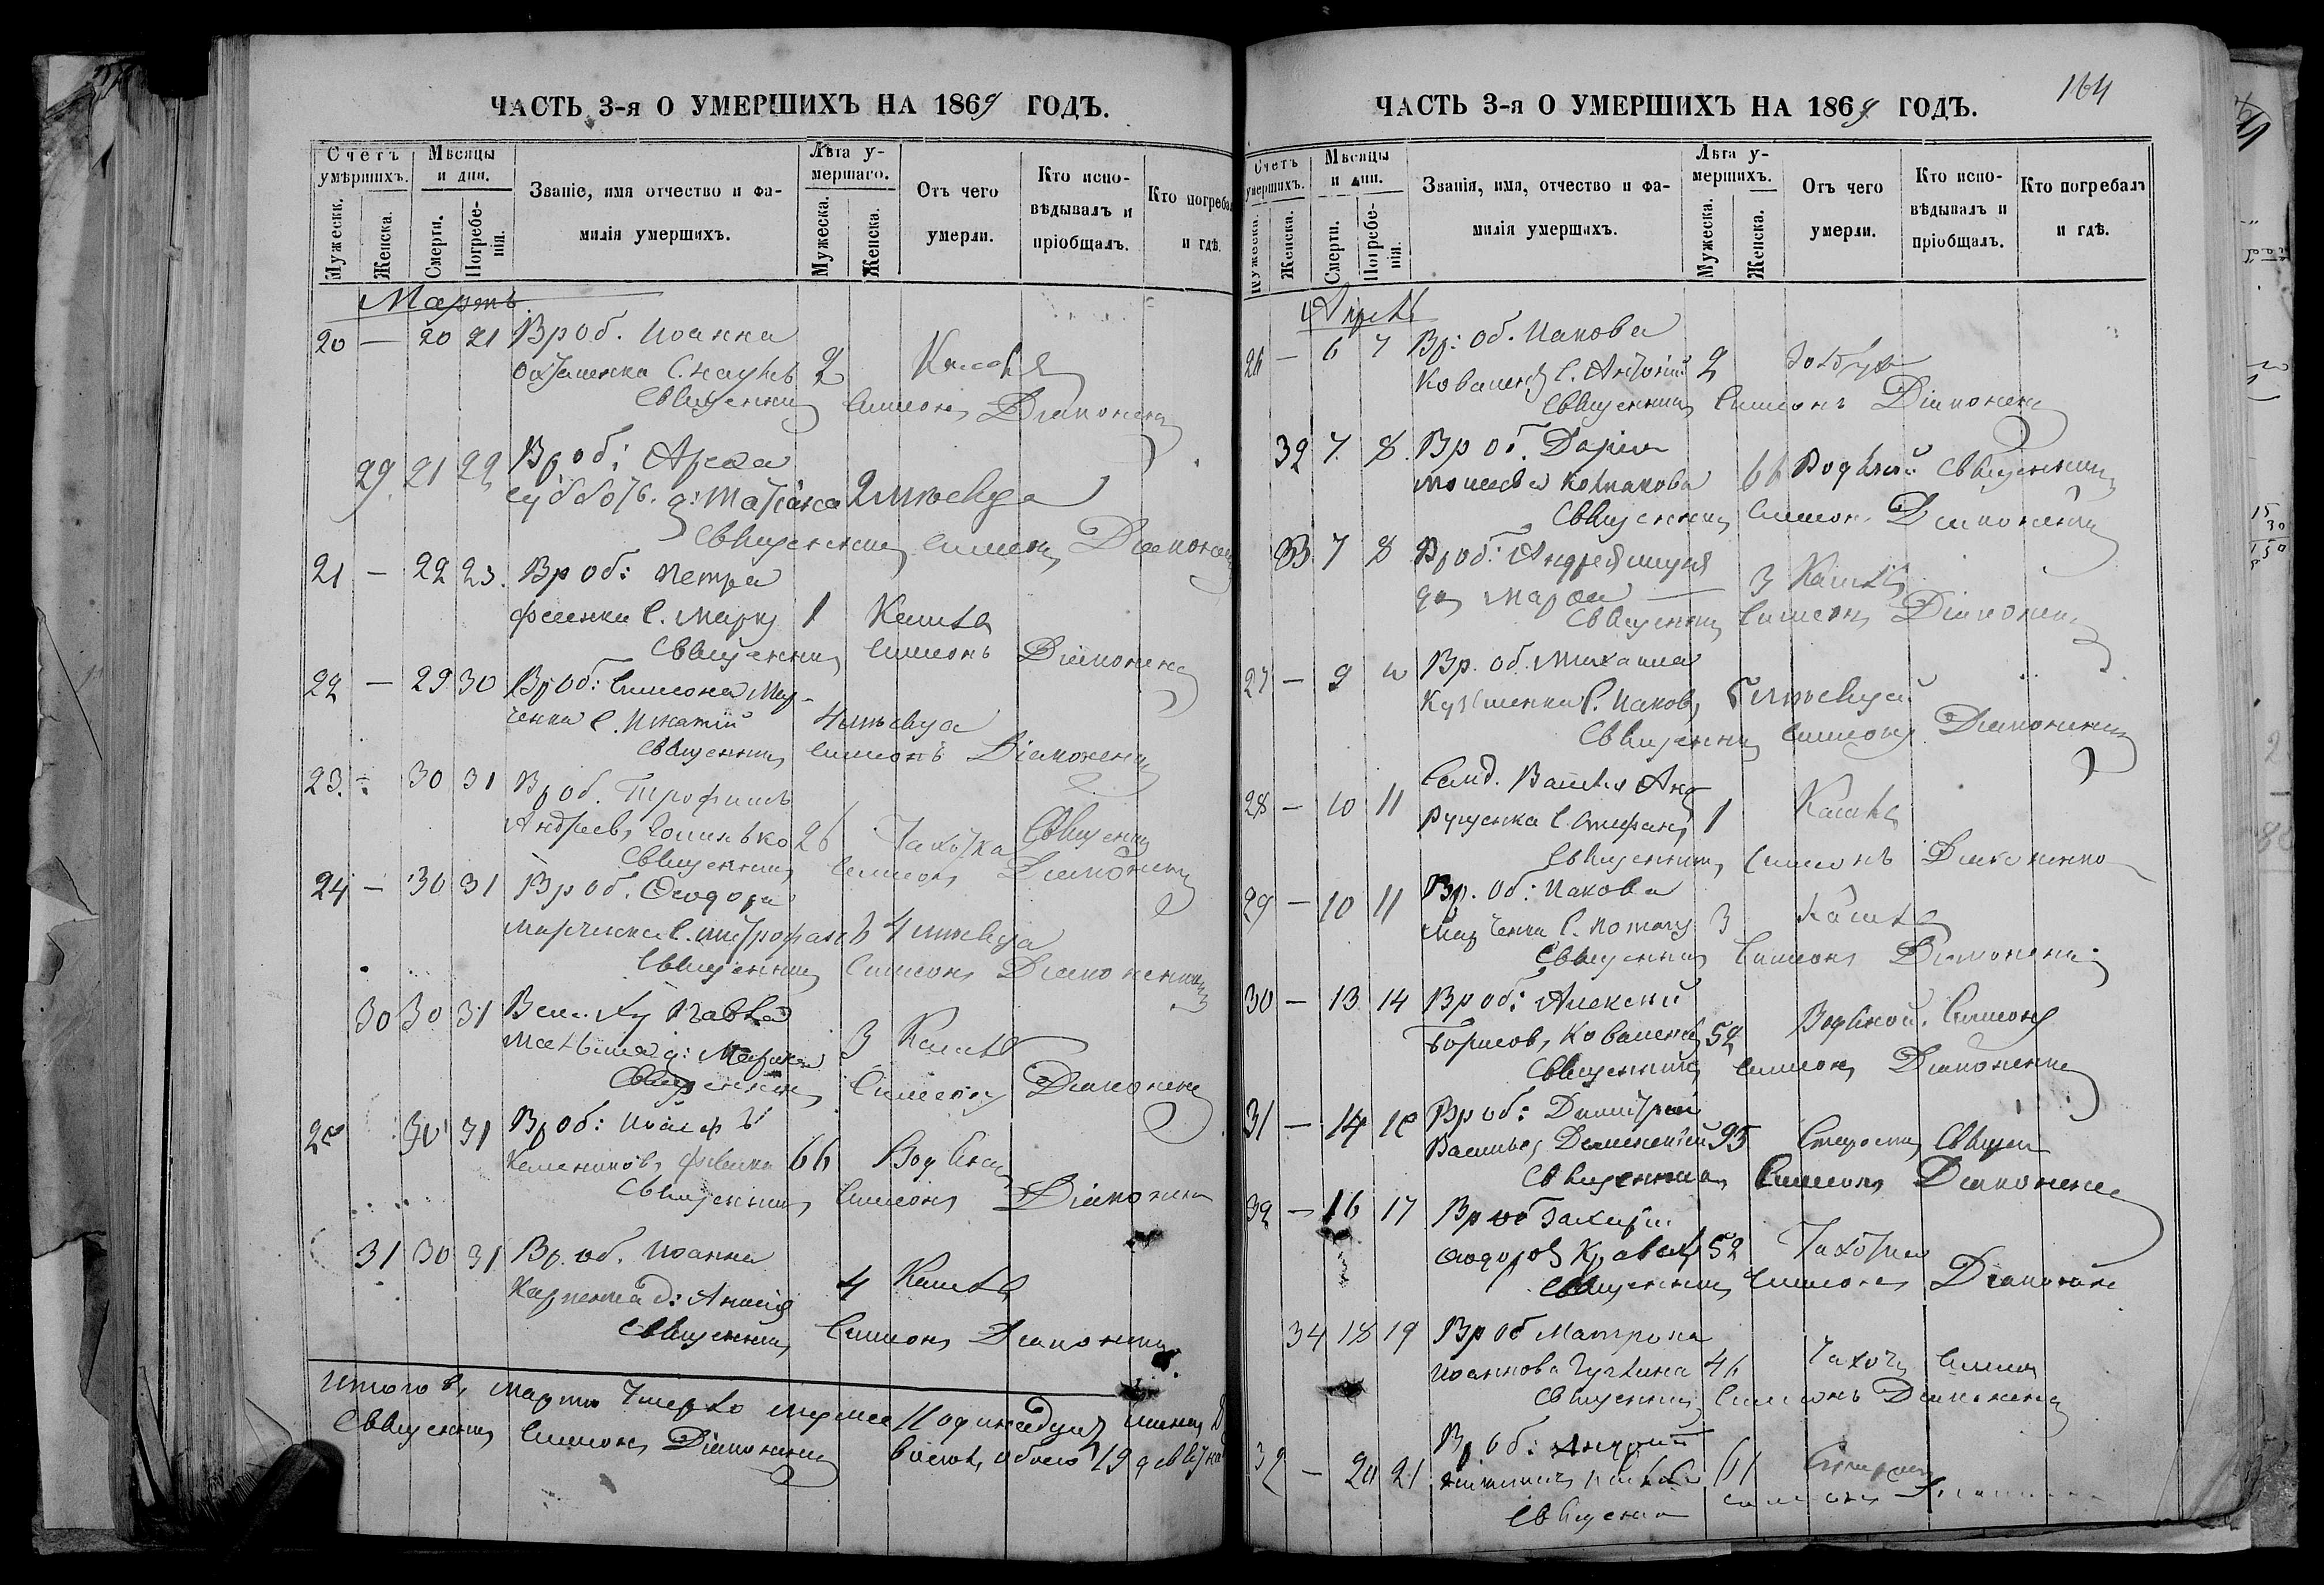 ЧАСТЬ 3-я О УМЕРШИХЪ НА 1869 ГОДЪ.
Счетъ умѣршихъ.
Мѣсяцы и дни.
Званіе, имя отчество и фамилія умершихъ.
Лѣта умершаго.
Отъ чего умерли.
Кто исповѣдывалъ и пріобщалъ.
Кто погреба
и гдѣ.
Мужеск.
Женска.
Смерти.
Погребенія.
Мужеска.
Женска.
Мартъ
20 — 20 21 Вр об. Іоанна
С. Наумъ 2 Кашель
Священникъ Симеонъ Діаконенко
29 21 22 Вр об:
д: Татіана 2 мѣсяца
Священникъ Симеонъ Діаконенко
21 — 22 23. Вр об: Петра
С. Маркъ 1 Кашель
Священникъ Симеонъ Діаконенко
22 — 29 30 Вр Об: Симеона Мар-
ченка С. Игнатій 4 мѣсяца
Священникъ Симеонъ Діаконенко
23. 30 31 Вр об. Трофимъ
Андреевъ 26 Чахотка Священникъ
Священникъ Симеонъ Діаконенко
24 — 30 31 Вр об. Ѳеодора
Марченка С. Митрофанъ 4 мѣсяца
Священникъ Симеонъ Діаконенко
30 30 31 Павла
д: Марія 3 Кашель
Священникъ Симеонъ Діаконенко
25 30 31 Вр об: Іосифъ
66 Водяной
Священникъ Симеонъ Діаконенко
31 30 31 Вр. об. Іоанна
Карпенка д: 4 Кашель
Священникъ Симеонъ Діаконенко
Итого въ мартѣ умерло мужеска 11 одинадцать женска 8
восемь, обоего 19 девятна
Священникъ Симеонъ Діаконенко
164
ЧАСТЬ 3-я О УМЕРШИХЪ НА 1869 ГОДЪ.
Счетъ умершихъ.
Мѣсяцы и дни.
Званія, имя, отчество и фамилія умершихъ.
Лѣта умершихъ.
Отъ чего умерли.
Кто исповѣдывалъ и пріобщалъ.
Кто погребалъ
и гдѣ.
Мужеска.
Женска.
Смерти.
Погребенія.
Мужеска.
Женска.
Апрѣль
26 — 6 7 Вр: об. Іакова
Коваленка С. Антоній 2
Священникъ Симеонъ Діаконенко
32 7 8 Вр об. Дарія
Моисеева 66 Водяной Священникъ
Священникъ Симеонъ Діаконенко
33 7 8 Вр об: Андрея
дочь 3 Кашель
Священникъ Симеонъ Діаконенко
27 — 9 10 Вр. об. Михаила
С. Іаковъ мѣсяцей
Священникъ Симеонъ Діаконенко
28 — 10 11 Солд. Василія Анд
рущенка С. Стефанъ 1 Кашель
Священникъ Симеонъ Діаконенко
29 — 10 11 Вр. Об: Іакова
Марченка С. 3 Кашель
Священникъ Симеонъ Діаконенко
30 — 13 14 Вр об: Алексѣй
Борисовъ Коваленко 52 Водяной. Симеонъ
Священникъ Симеонъ Діаконенко
31 — 14 15 Вр об: Димитрій
Васильевъ 95 Старости Священ
Священникъ Симеонъ Діаконенко
32 — 16 17 Вр об Захарія
Ѳеодоровъ Кравецъ 52 Чахотка
Священникъ Симеонъ Діаконенко
34 18 19 Вр об Матрона
Іоаннова 46 Чахотка Симеонъ
Священникъ Симеонъ Діаконенко
20 21 Вр об: Андрей
61 Старости
Священникъ Симеонъ Діаконенко